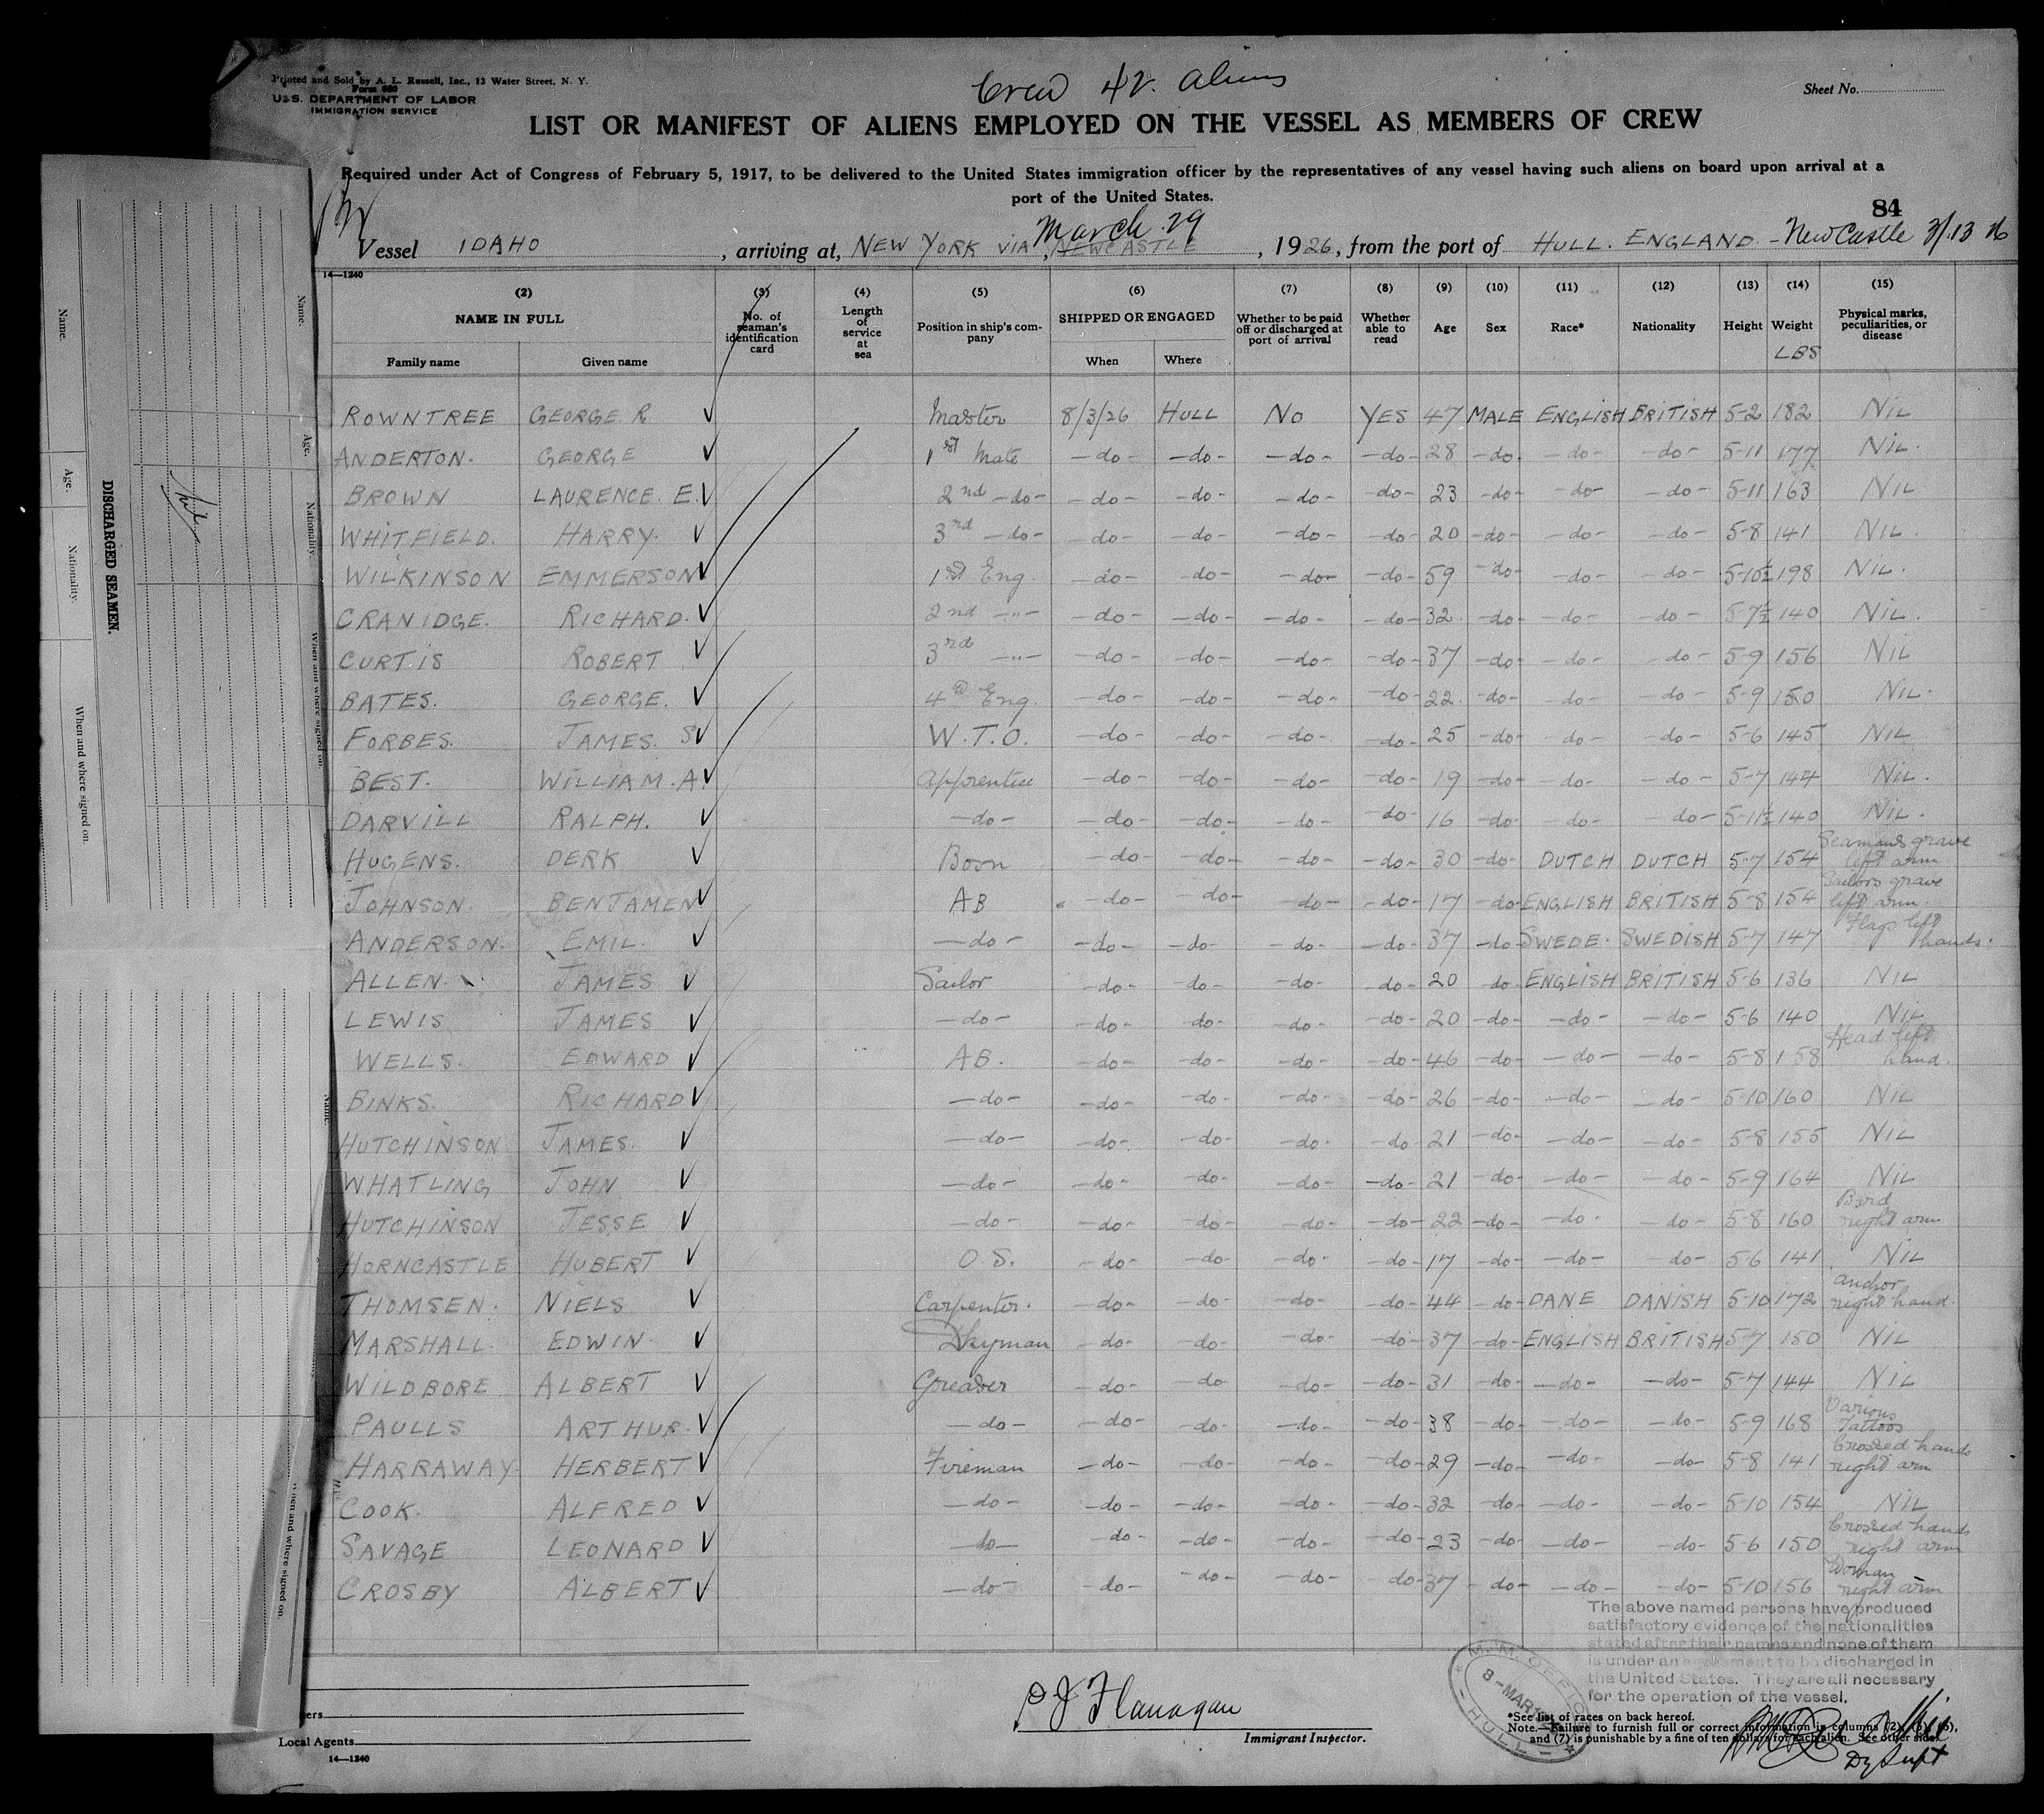 Printed and Sold by A. L. Russell, Inc., 13 Water Street, N. Y.
Form 680
U.S. DEPARTMENT OF LABOR
IMMIGRATION SERVICE
Crew 42 aliens
Sheet No.
LIST OR MANIFEST OF ALIENS EMPLOYED ON THE VESSEL AS MEMBERS OF CREW
Required under Act of Congress of February 5, 1917, to be delivered to the United States immigration officer by the representatives of any vessel having such aliens on board upon arrival at a
port of the United States.
84
Vessel IDAHO, arriving at, NEW YORK VIA, NEWCASTLE March 29, 1926, from the port of HULL. ENGLAND - NewCastle 3/13 26
14—1240
(2) (3) (4) (5) (6) (7) (8) (9) (10) (11) (12) (13) (14) (15)
NAME IN FULL No. of seaman's identification card Length of service at sea Position in ship's company SHIPPED OR ENGAGED Whether to be paid off or discharged at port of arrival Whether able to read Age Sex Race* Nationality Height Weight LBS Physical marks, peculiarities, or disease
Family name Given name When Where
ROWNTREE GEORGE R ✓ Master 8/3/26 HULL NO YES 47 MALE ENGLISH BRITISH 5-2 182 NIL
ANDERTON. GEORGE ✓ 1st Mate -do- -do- -do- -do- 28 -do- -do- -do- 5-11 177 NIL.
BROWN LAURENCE. E. ✓ 2nd -do- -do- -do- -do- -do- 23 -do- -do- -do- 5-11 163 NIL
WHITFIELD. HARRY. ✓ 3rd -do- -do- -do- -do- -do- 20 -do- -do- -do- 5-8 141 NIL.
WILKINSON EMMERSON ✓ 1st Eng. -do- -do- -do- -do- 59 -do- -do- -do- 5-10½ 198 NIL.
CRANIDGE. RICHARD. ✓ 2nd -"- -do- -do- -do- -do- 32 -do- -do- -do- 5-7½ 140 NIL.
CURTIS ROBERT ✓ 3rd -"- -do- -do- -do- -do- 37 -do- -do- -do- 5-9 156 NIL
BATES. GEORGE. ✓ 4th Eng. -do- -do- -do- -do- 22 -do- -do- -do- 5-9 150 NIL.
FORBES. JAMES. S ✓ W.T.O. -do- -do- -do- -do- 25 -do- -do- -do- 5-6 145 NIL
BEST. WILLIAM. A. ✓ Apprentice -do- -do- -do- -do- 19 -do- -do- -do- 5-7 144 NIL.
DARVILL RALPH. ✓ -do- -do- -do- -do- -do- 16 -do- -do- -do- 5-11½ 140 NIL.
HUGENS. DERK ✓ Bosn -do- -do- -do- -do- 30 -do- DUTCH DUTCH 5-7 154 Seamans grave left arm
JOHNSON. BENJAMEN ✓ AB -do- -do- -do- -do- 17 -do- ENGLISH BRITISH 5-8 154 Sailors grave left arm.
ANDERSON. EMIL. ✓ -do- -do- -do- -do- -do- 37 -do- SWEDE. SWEDISH 5-7 147 Flags left hands.
ALLEN. JAMES ✓ Sailor -do- -do- -do- -do- 20 -do- ENGLISH BRITISH 5-6 136 NIL
LEWIS JAMES ✓ -do- -do- -do- -do- -do- 20 -do- -do- -do- 5-6 140 NIL
WELLS. EDWARD ✓ AB. -do- -do- -do- -do- 46 -do- -do- -do- 5-8 158 Head left hand.
BINKS. RICHARD ✓ -do- -do- -do- -do- -do- 26 -do- -do- -do- 5-10 160 NIL
HUTCHINSON JAMES. ✓ -do- -do- -do- -do- -do- 21 -do- -do- -do- 5-8 155 NIL
WHATLING JOHN ✓ -do- -do- -do- -do- -do- 21 -do- -do- -do- 5-9 164 NIL
HUTCHINSON JESSE ✓ -do- -do- -do- -do- -do- 22 -do- -do- -do- 5-8 160 Bird right arm
HORNCASTLE HUBERT ✓ O.S. -do- -do- -do- -do- 17 -do- -do- -do- 5-6 141 NIL
THOMSEN. NIELS ✓ Carpenter. -do- -do- -do- -do- 44 -do- DANE DANISH 5-10 172 anchor right hand.
MARSHALL. EDWIN. ✓ Dkyman -do- -do- -do- -do- 37 -do- ENGLISH BRITISH 5-7 150 NIL
WILDBORE ALBERT ✓ Greaser -do- -do- -do- -do- 31 -do- -do- -do- 5-7 144 NIL
PAULLS ARTHUR. ✓ -do- -do- -do- -do- -do- 38 -do- -do- -do- 5-9 168 Various Tattoos
HARRAWAY HERBERT ✓ Fireman -do- -do- -do- -do- 29 -do- -do- -do- 5-8 141 Crossed hands right arm
COOK. ALFRED ✓ -do- -do- -do- -do- -do- 32 -do- -do- -do- 5-10 154 NIL
SAVAGE LEONARD ✓ -do- -do- -do- -do- -do- 23 -do- -do- -do- 5-6 150 Crossed hands right arm
CROSBY ALBERT ✓ -do- -do- -do- -do- -do- 37 -do- -do- -do- 5-10 156 Woman right arm
The above named persons have produced
satisfactory evidence of the nationalities
stated after their names and none of them
is under an agreement to be discharged in
the United States. They are all necessary
for the operation of the vessel.
M. M. OFFICE
8 - MAR
HULL
P J Flanagan
Immigrant Inspector.
*See list of races on back hereof.
Note.—Failure to furnish full or correct information in columns (2), (5), (6),
and (7) is punishable by a fine of ten dollars for each alien. See other side.
Dy Supt
Local Agents
14—1240
DISCHARGED SEAMEN.
Name.
Age.
Nationality.
When and where signed on.
Name.
Age.
Nationality.
When and where signed on.
Name.
When and where signed on.